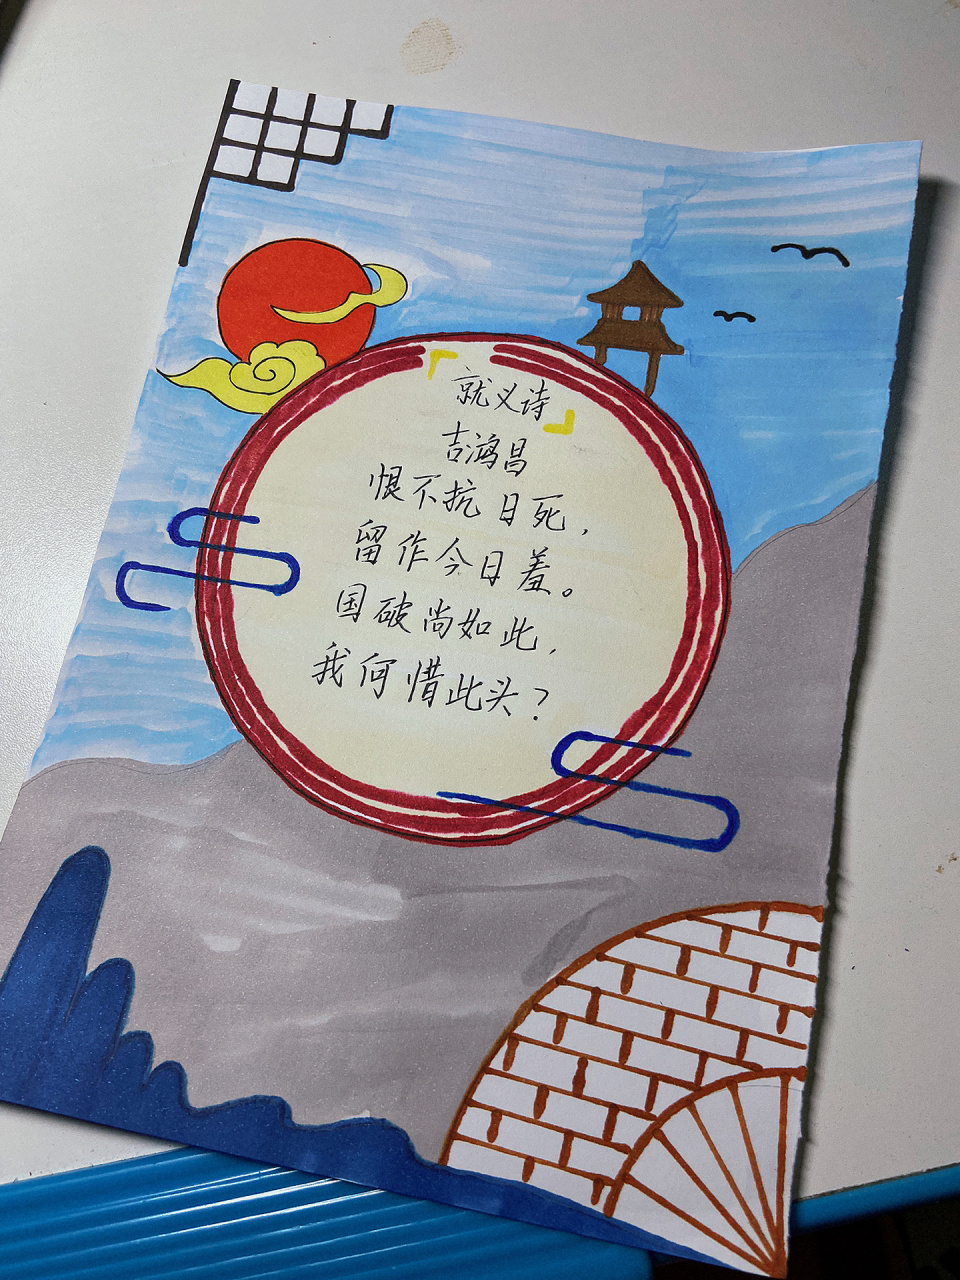 「就义诗」
吉鸿昌
恨不抗日死，
留作今日羞。
国破尚如此，
我何惜此头？